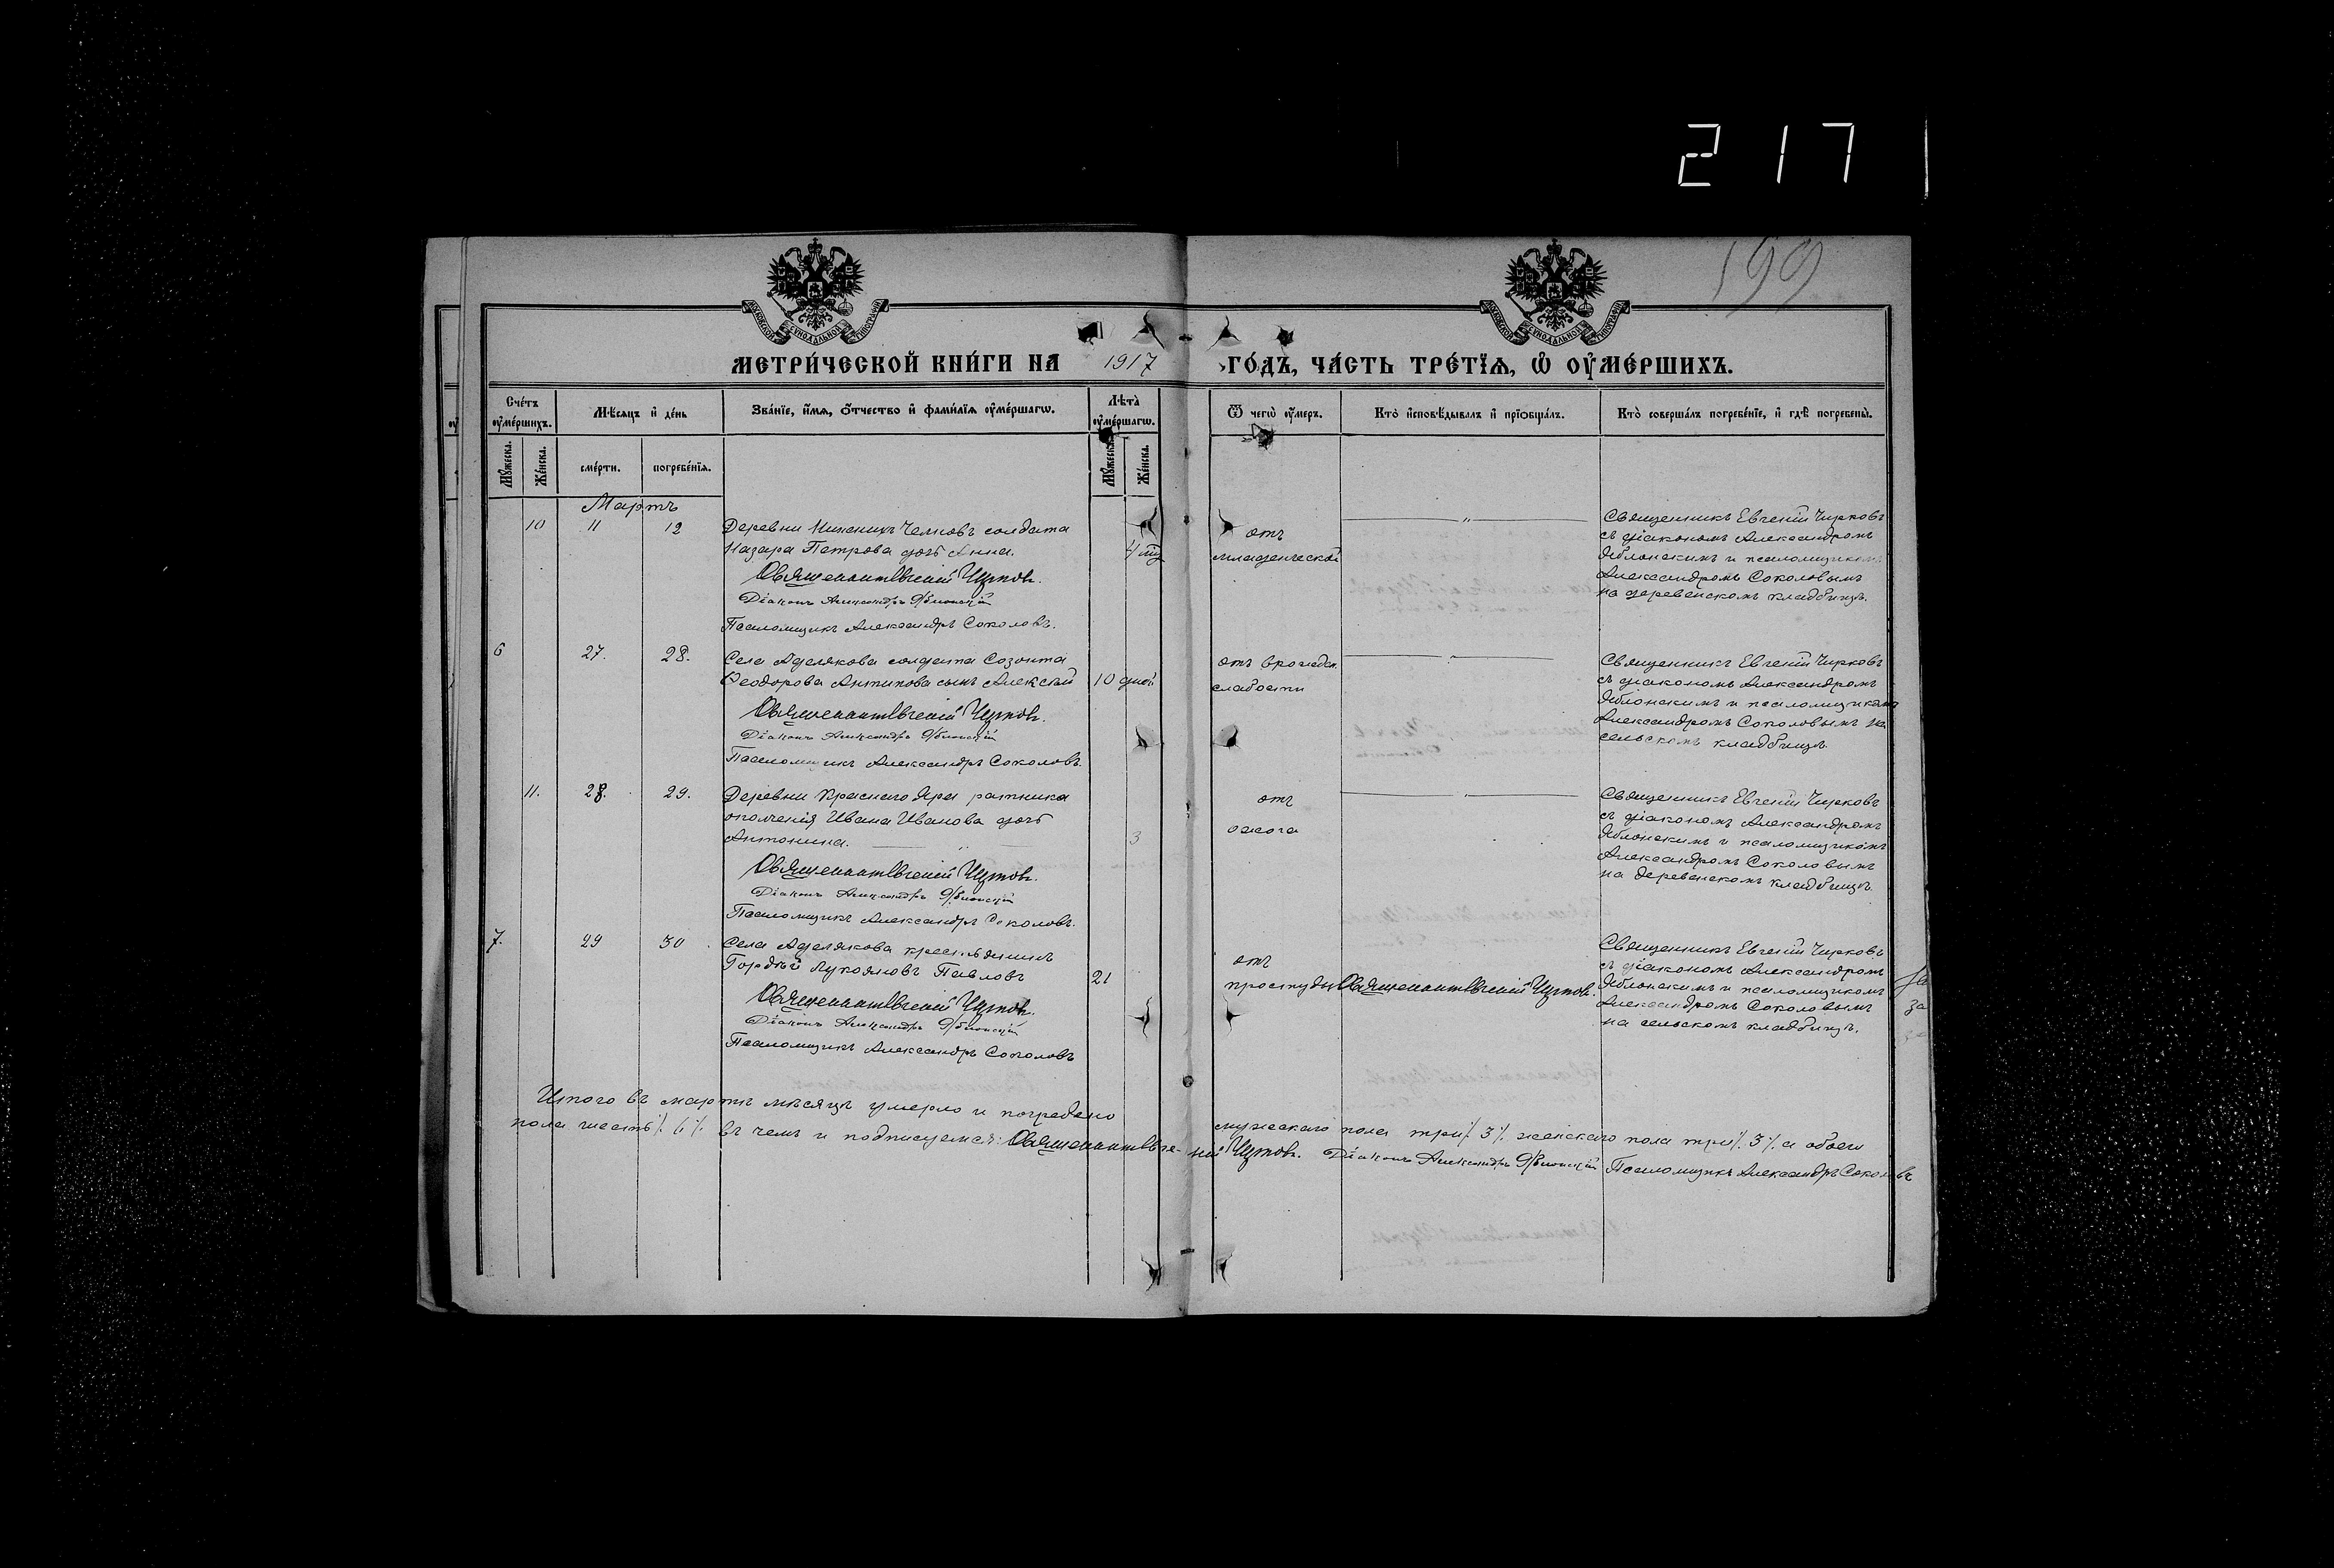 2171
199
МОСКОВСКОЙ СѴНОДАЛЬНОЙ ТИПОГРАФІИ
МОСКОВСКОЙ СѴНОДАЛЬНОЙ ТИПОГРАФІИ
МЕТРИ́ЧЕСКОЙ КНИ́ГИ НА 1917 ГО́ДЪ, ЧА́СТЬ ТРЕ́ТЇѦ, Ѡ҆ ОУ҆МЕ́РШИХЪ.
Сче́тъ оу҆ме́ршихъ.
Мꙋ́жеска.
Же́нска.
Мѣ́сяцъ и҆ де́нь
сме́рти.
погребе́нїѧ.
Зва́нїе, и҆́мѧ, ѻ҆́тчество и҆ фами́лїѧ оу҆ме́ршагѡ.
Лѣ́та оу҆ме́ршагѡ.
Мꙋ́жеска.
Же́нска.
Ѿ чегѡ̀ оу҆́меръ.
Кто̀ и҆сповѣ́дывалъ и҆ прїѡбща́лъ.
Кто̀ соверша́лъ погребе́нїе, и҆ гдѣ̀ погребены̀.
Мартъ
10 11 12
Деревни Нижнихъ Челновъ солдата
Назара Петрова дочь Анна.
4 мц
Священникъ Евгеній Чирковъ.
Діаконъ Александръ Яблонскій
Псаломщикъ Александръ Соколовъ.
отъ
младенческой
Священникъ Евгеній Чирковъ
съ діакономъ Александромъ
Яблонскимъ и псаломщикомъ
Александромъ Соколовымъ
на деревенскомъ кладбищѣ.
6 27. 28.
Села Аделякова солдата Созонта
Ѳеодорова Антипова сынъ Алексѣй
10 дней
Священникъ Евгеній Чирковъ.
Діаконъ Александръ Яблонскій
Псаломщикъ Александръ Соколовъ.
отъ врожден.
слабости
Священникъ Евгеній Чирковъ
съ діакономъ Александромъ
Яблонскимъ и псаломщикомъ
Александромъ Соколовымъ на
сельскомъ кладбищѣ.
11. 28. 29.
Деревни Краснаго Яра ратника
ополченія Ивана Иванова дочь
Антонина.
3
Священникъ Евгеній Чирковъ.
Діаконъ Александръ Яблонскій
Псаломщикъ Александръ Соколовъ.
отъ
ожога
Священникъ Евгеній Чирковъ
съ діакономъ Александромъ
Яблонскимъ и псаломщикомъ
Александромъ Соколовымъ
на деревенскомъ кладбищѣ.
7. 29 30
Села Аделякова крестьянинъ
Гордѣй Лукояновъ Павловъ
21
Священникъ Евгеній Чирковъ.
Діаконъ Александръ Яблонскій
Псаломщикъ Александръ Соколовъ
отъ
простуды
Священникъ Евгеній Чирковъ.
Священникъ Евгеній Чирковъ
съ діакономъ Александромъ
Яблонскимъ и псаломщикомъ
Александромъ Соколовымъ
на сельскомъ кладбищѣ.
Итого въ мартѣ мѣсяцѣ умерло и погребено мужескаго пола три /. 3 /. женскаго пола три /. 3 /. а обоего
пола шесть /. 6 /. въ чемъ и подписуемся: Священникъ Евгеній Чирковъ. Діаконъ Александръ Яблонскій Псаломщикъ Александръ Соколовъ